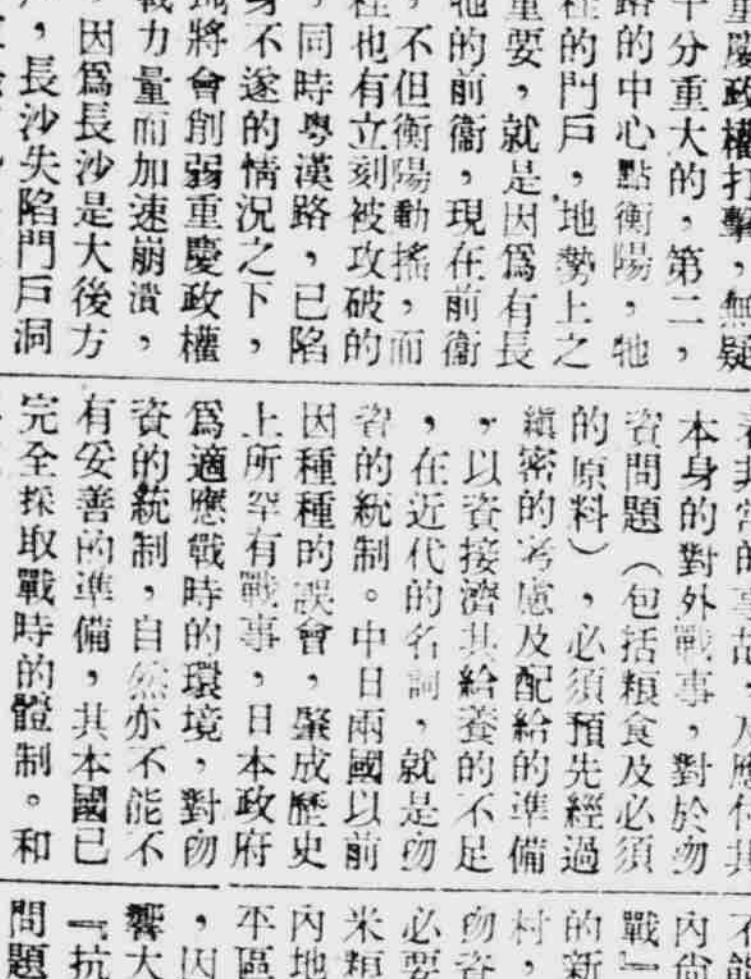 重慶政權打擊，無疑
十分重大的，第二，
路的中心點衡陽，牠
的門戶，地勢上之
重要，就是因爲有長
牠的前衞，現在前衞
，不但衡陽動搖，而
也有立刻被攻破的
，同時粵漢路，已陷
身不遂的情況之下，
將會削弱重慶政權
戰力量而加速崩潰，
因爲長沙是大後方
，長沙失陷門戶洞
非常的事故，及應付其
本身的對外戰事，對於物
資問題（包括粮食及必須
的原料），必須預先經過
縝密的考慮及配給的準備
，以資接濟其給養的不足
，在近代的名詞，就是物
資的統制。中日兩國以前
因種種的誤會，肇成歷史
上所罕有戰事，日本政府
爲適應戰時的環境，對物
資的統制，自然亦不能不
有妥善的準備，其本國已
完全採取戰時的體制。和
不
內
戰『
的新
村，
物資
必要
米粮
內地
平區
，因
響大
『抗
問題